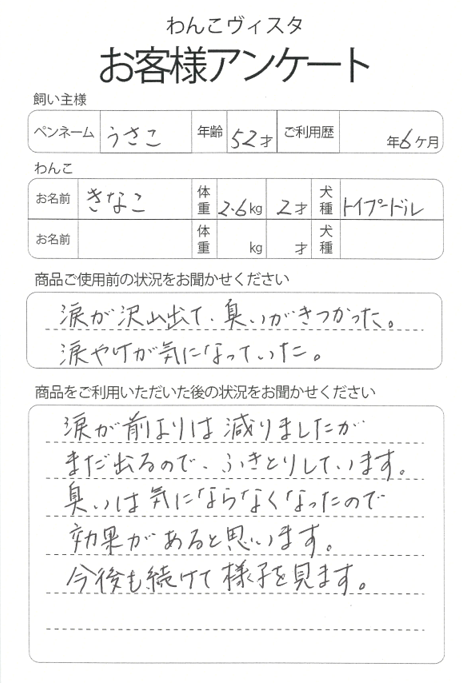 わんこヴィスタ
お客様アンケート
飼い主様
ペンネーム うさこ 年齢 52才 ご利用歴 年6ケ月
わんこ
お名前 きなこ 体重 2.6kg 2才 犬種 トイプードル
お名前 体重 kg 才 犬種
商品ご使用前の状況をお聞かせください
涙が沢山出て、臭いがきつかった。
涙やけが気になっていた。
商品をご利用いただいた後の状況をお聞かせください
涙が前よりは減りましたが
まだ出るので、ふきとりしています。
臭いは気にならなくなったので
効果があると思います。
今後も続けて様子を見ます。